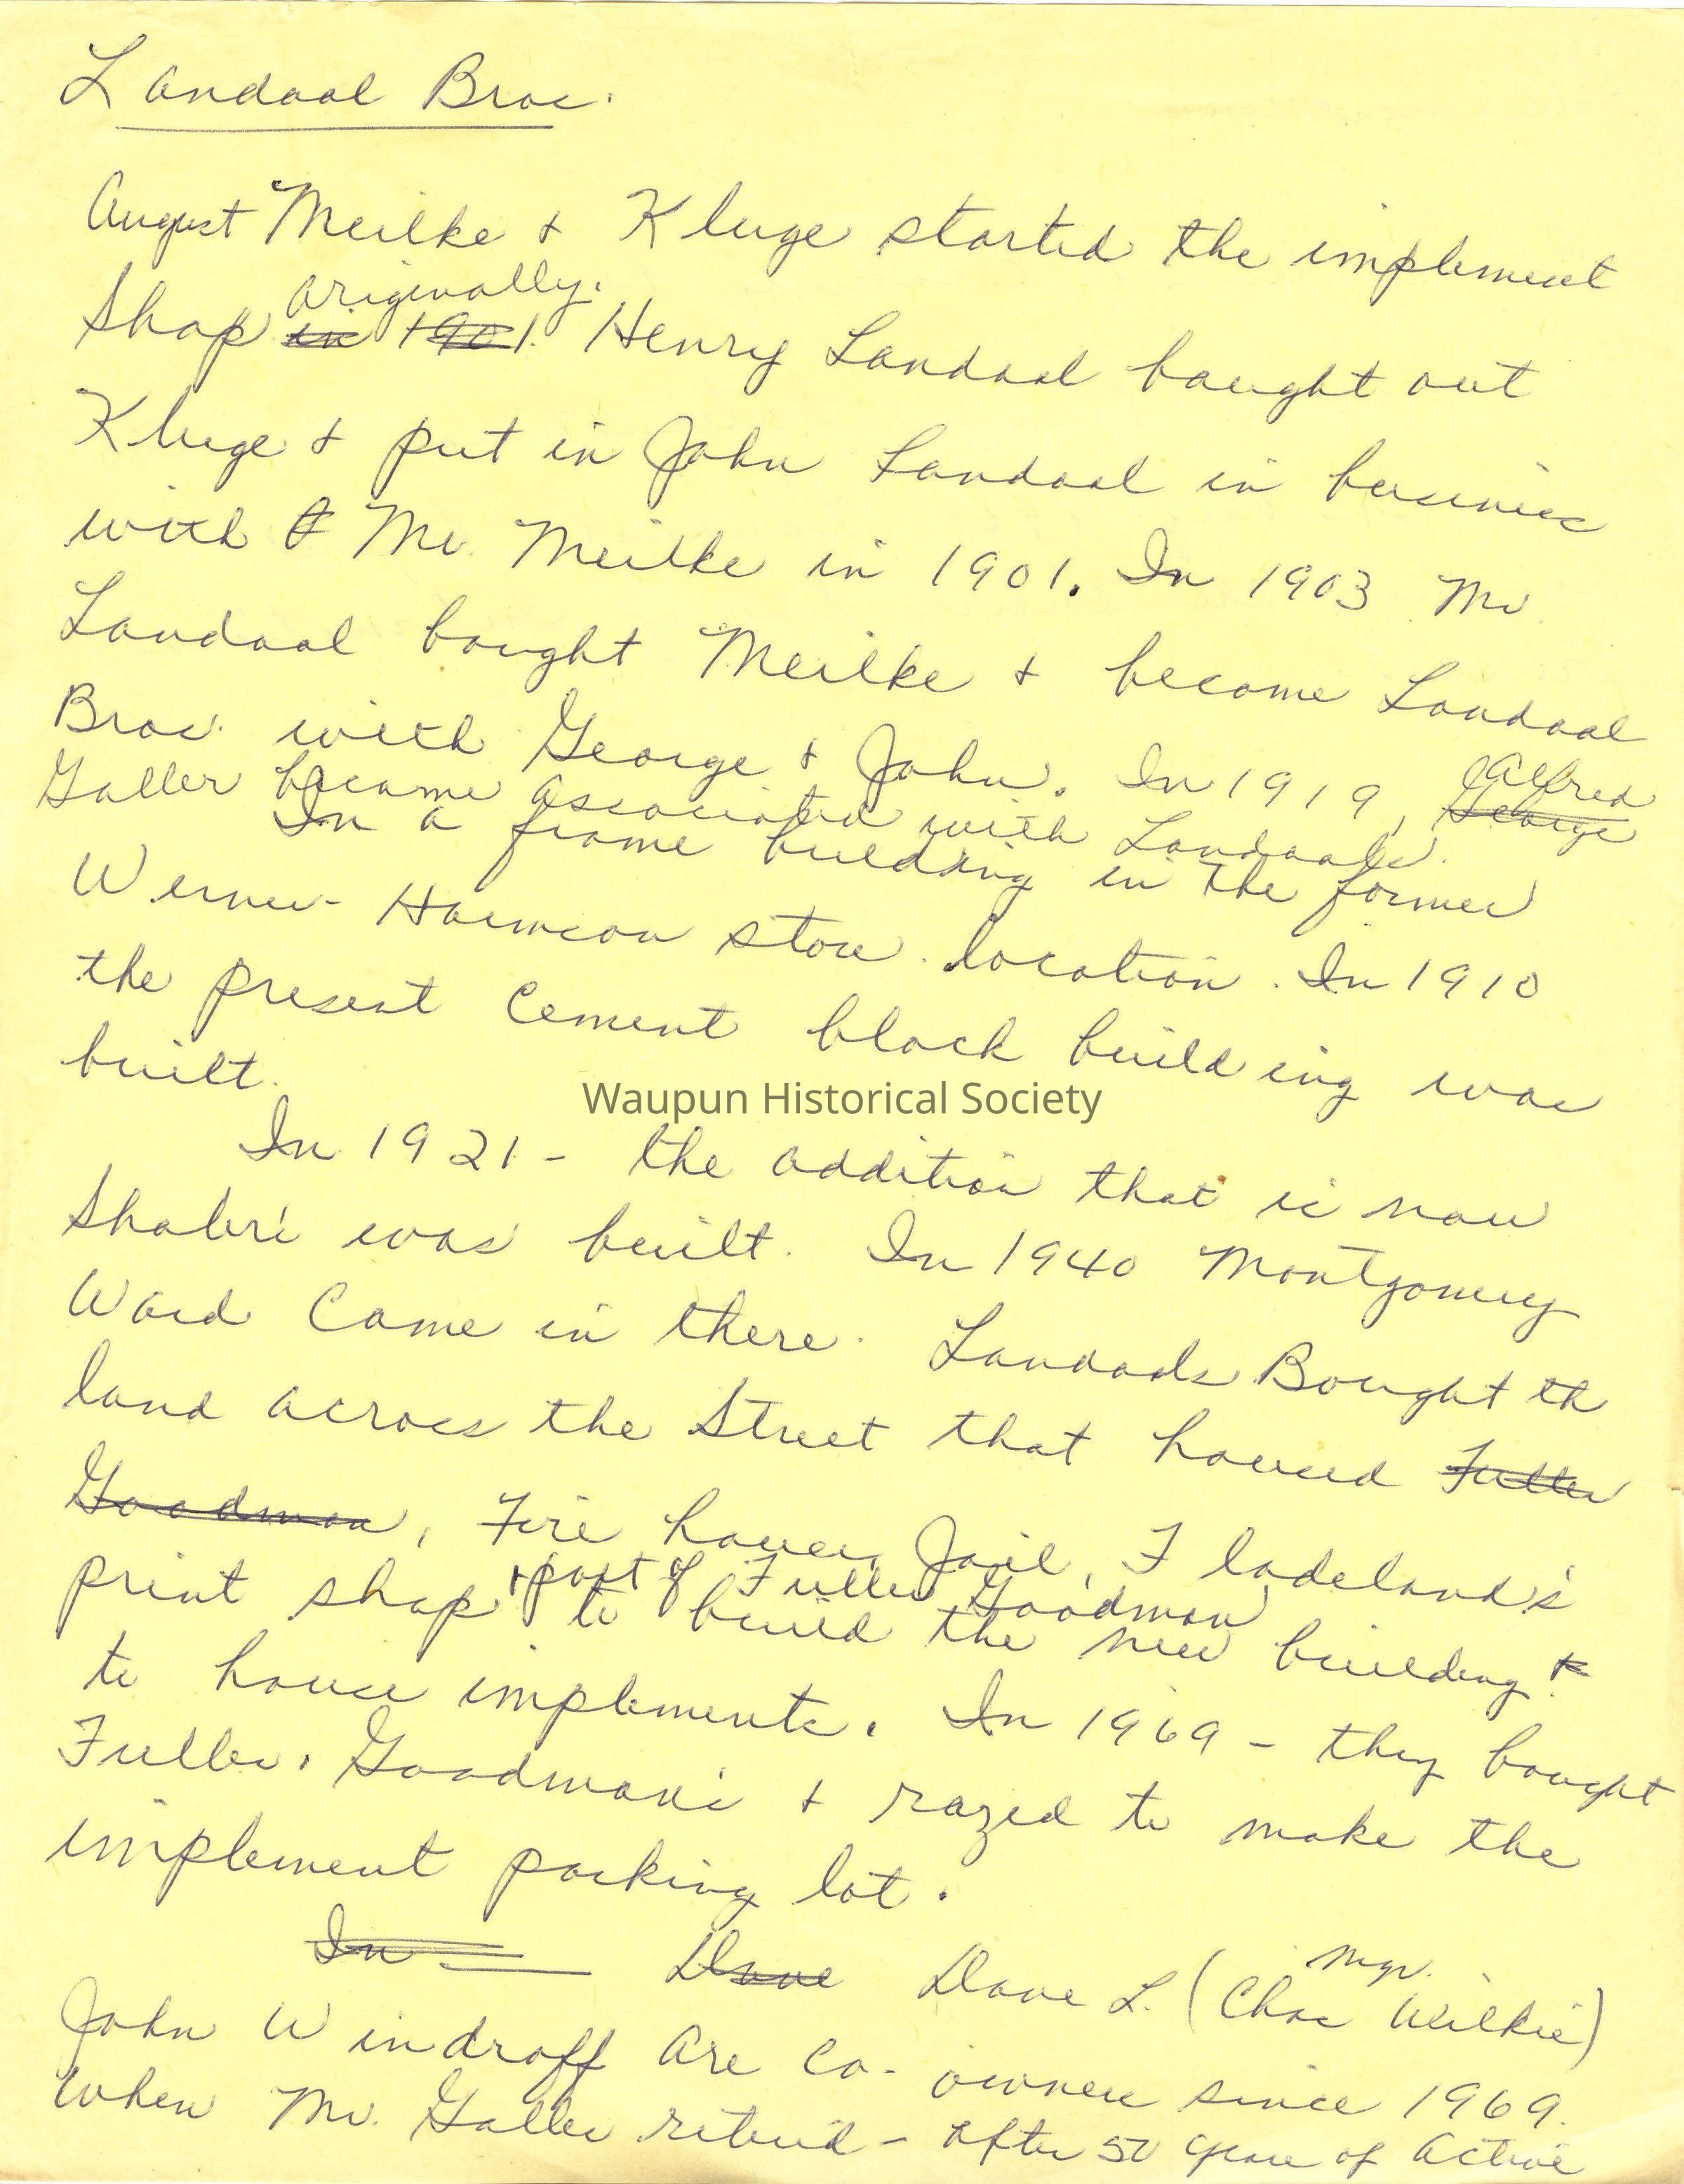 Landaal Bros.
August Meilke & Kluge started the implement
originally.
Shop in 1901. Henry Landaal bought out
Kluge & put in John Landaal in business
with Mr. Meilke in 1901. In 1903 Mr
Landaal bought Meilke & become Landaal
Bros. with George & John. In 1919, Alfred
George
Galler became associated with Landaals.
In a frame building in the former
Werner-Harmson store location. In 1910
the present cement block building was
built.
Waupun Historical Society
In 1921 - the addition that is now
Shaler's was built. In 1940 Montgomery
Ward Came in there. Landaals Bought th
land across the Street that housed Fuller
Goodman, Fire house, Jail, Fladeland's
+ part of Fuller Goodman
print shop to build the new building
to house implements. In 1969 - they bought
Fuller. Goodman's & razed to make the
implement parking lot.
mgr.
In Dave Dave L. (Chas Wilkie)
John Windroff are co-owners since 1969.
When Mr. Galler retired - after 50 years of active